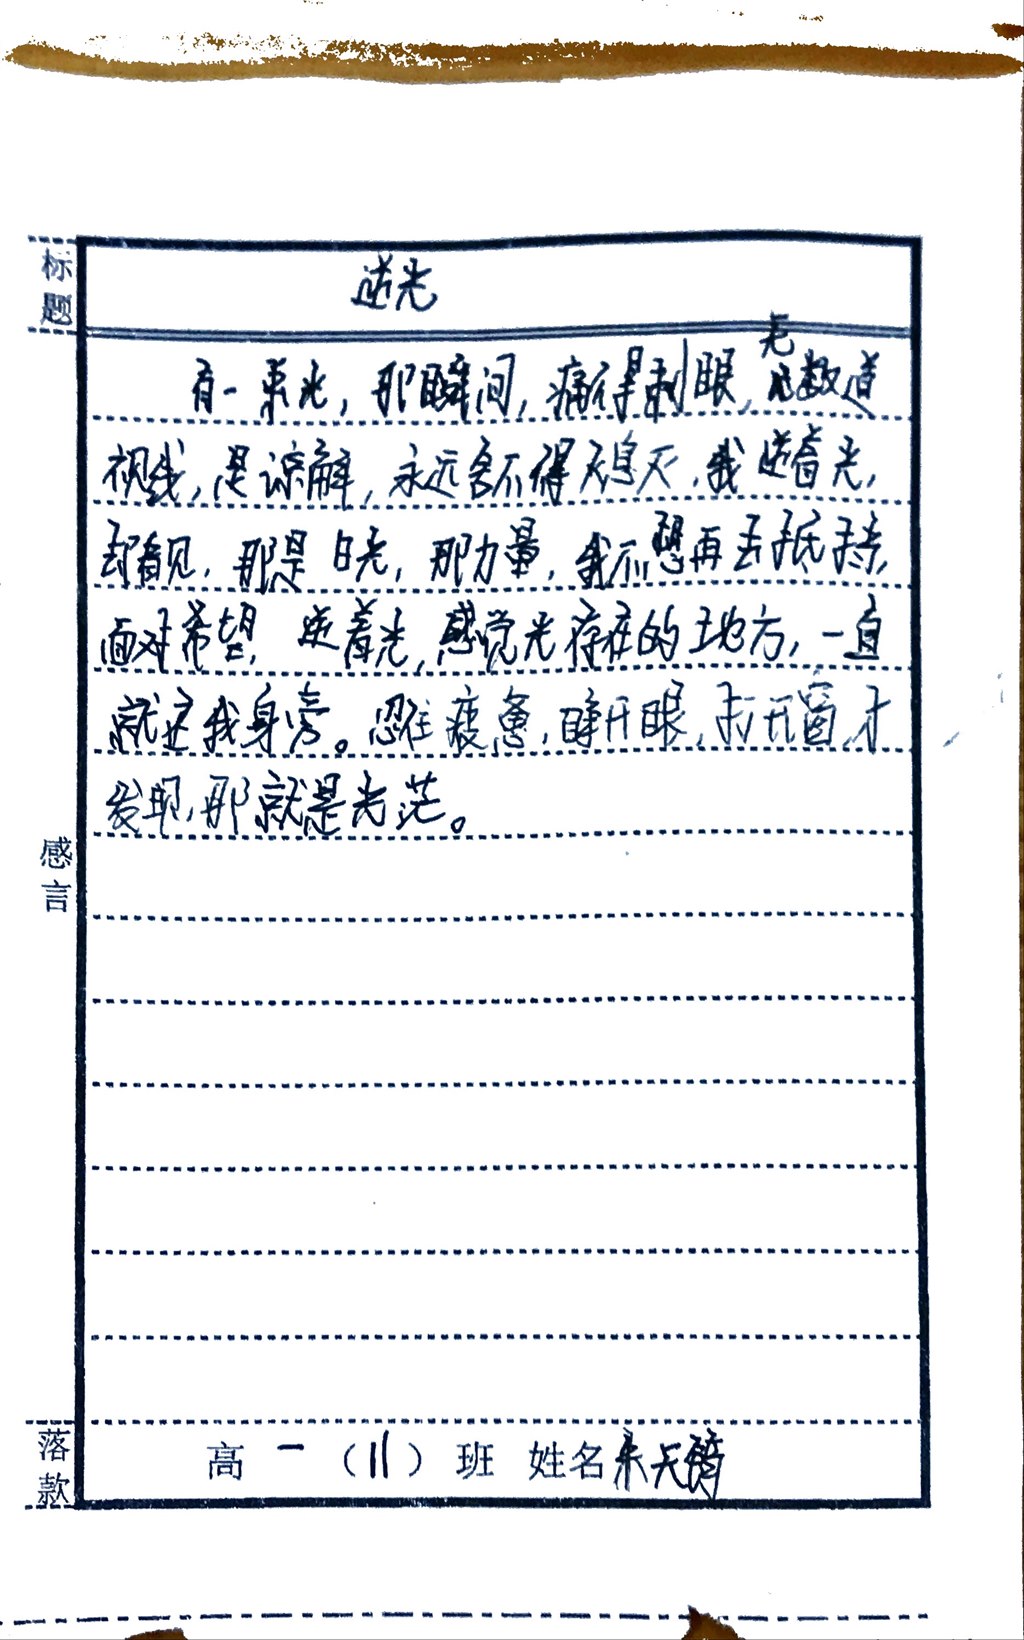 标题
逆光
有一束光，那瞬间，痛得刺眼，无数道
视线，是谅解，永远舍不得熄灭，我逆着光，
却看见，那是日光，那力量，我不想再去抵挡，
面对希望，逆着光，感觉光存在的地方，一直
就在我身旁。忍住疲惫，睁开眼，打开窗，才
发现，那就是光茫。
感言
落款
高一（11）班 姓名